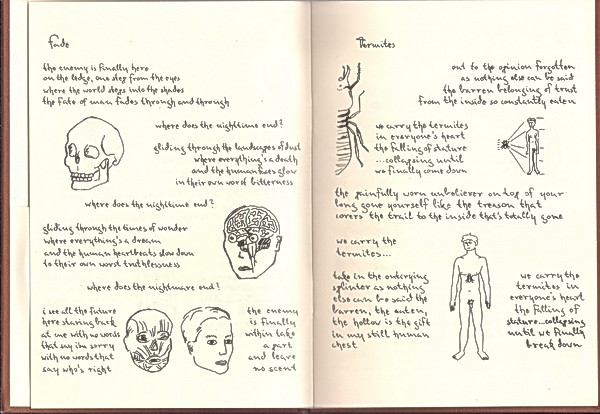 Fade
the enemy is finally here
on the ledge, one step from the eyes
where the world steps into the shades
the fate of man fades through and through
where does the nighttime end?
gliding through the landscapes of dust
where everything's a death
and the human faces glow
in their own worst bitterness
where does the nighttime end?
gliding through the times of wonder
where everything's a dream
and the human heartbeats slow down
to their own worst truthlessness
where does the nightmare end?
i see all the future
here staring back
at me with no words
that say i'm sorry
with no words that
say who's right
the enemy
is finally
within take
a part
and leave
no scent
Termites
out to the opinion forgotten
as nothing else can be said
the barren belonging of trust
from the inside so constantly eaten
we carry the termites
in everyone's heart
the falling of stature
...collapsing until
we finally come down
the painfully worn unbeliever on top of your
long gone yourself like the treason that
covers the trail to the inside that's totally gone
we carry the
termites...
take in the outcrying
splinter as nothing
else can be said the
barren, the eaten,
the hollow is the gift
in my still human
chest
we carry the
termites in
everyone's heart
the falling of
stature...collapsing
until we finally
break down